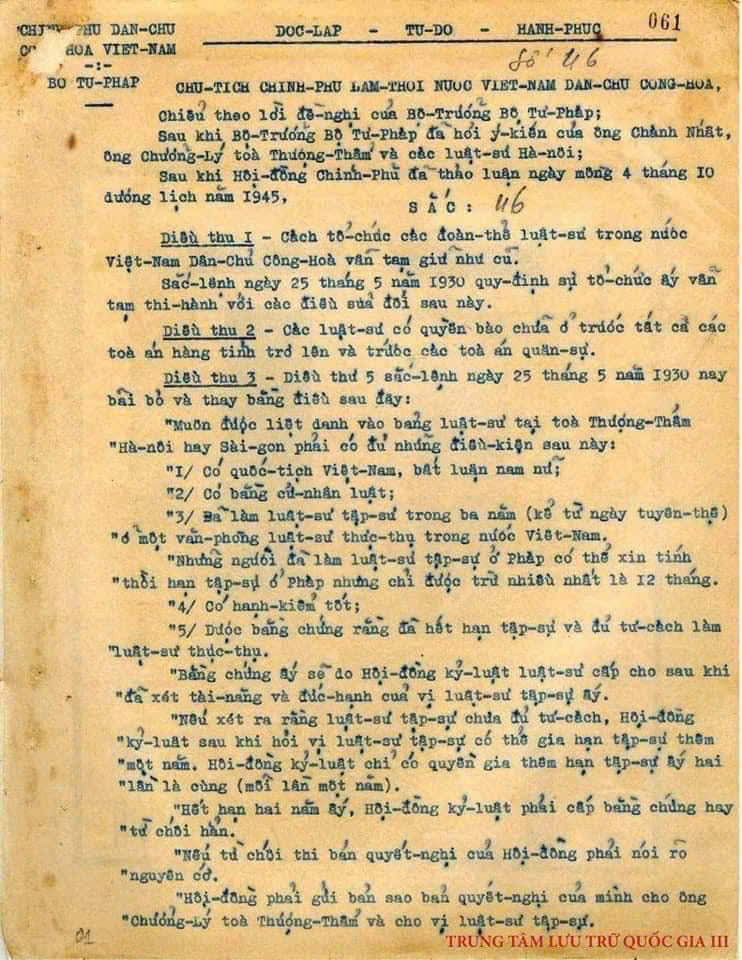 CHINH PHU DAN-CHU
CONG HOA VIET-NAM
-:-
BO TU-PHAP
DOC-LAP - TU-DO - HANH-PHUC
061
Số 46
CHU-TICH CHINH-PHU LAM-THOI NUOC VIET-NAM DAN-CHU CONG-HOA,
Chiểu theo lời đề-nghị của Bộ-Trưởng Bộ Tư-Pháp;
Sau khi Bộ-Trưởng Bộ Tư-Pháp đã hỏi ý-kiến của ông Chánh Nhất,
ông Chưởng-Lý toà Thượng-Thẩm và các luật-sư Hà-nội;
Sau khi Hội-đồng Chính-Phủ đã thảo luận ngày mồng 4 tháng 10
dương lịch năm 1945,
SẮC : 46
Điều thu I - Cách tổ-chức các đoàn-thể luật-sư trong nước
Việt-Nam Dân-Chủ Cộng-Hoà vẫn tạm giữ như cũ.
Sắc-lệnh ngày 25 tháng 5 năm 1930 quy-định sự tổ-chức ấy vẫn
tạm thi-hành với các điều sửa đổi sau này.
Điều thu 2 - Các luật-sư có quyền bào chữa ở trước tất cả các
toà án hàng tỉnh trở lên và trước các toà án quân-sự.
Điều thu 3 - Điều thứ 5 sắc-lệnh ngày 25 tháng 5 năm 1930 nay
bãi bỏ và thay bằng điều sau đây:
"Muốn được liệt danh vào bảng luật-sư tại toà Thượng-Thẩm
"Hà-nội hay Sài-gon phải có đủ những điều-kiện sau này:
"I/ Có quốc-tịch Việt-Nam, bất luận nam nữ;
"2/ Có bằng cử-nhân luật;
"3/ Đã làm luật-sư tập-sự trong ba năm (kể từ ngày tuyên-thệ)
"ở một văn-phòng luật-sư thực-thụ trong nước Việt-Nam.
"Những người đã làm luật-sư tập-sự ở Pháp có thể xin tính
"thời hạn tập-sự ở Pháp nhưng chỉ được trừ nhiều nhất là 12 tháng.
"4/ Có hạnh-kiểm tốt;
"5/ Được bằng chứng rằng đã hết hạn tập-sự và đủ tư-cách làm
"luật-sư thực-thụ.
"Bằng chứng ấy sẽ do Hội-đồng kỷ-luật luật-sư cấp cho sau khi
"đã xét tài-năng và đức-hạnh của vị luật-sư tập-sự ấy.
"Nếu xét ra rằng luật-sư tập-sự chưa đủ tư-cách, Hội-đồng
"kỷ-luật sau khi hỏi vị luật-sư tập-sự có thể gia hạn tập-sự thêm
"một năm. Hội-đồng kỷ-luật chỉ có quyền gia thêm hạn tập-sự ấy hai
"lần là cùng (mỗi lần một năm).
"Hết hạn hai năm ấy, Hội-đồng kỷ-luật phải cấp bằng chứng hay
"từ chối hẳn.
"Nếu từ chối thì bản quyết-nghị của Hội-đồng phải nói rõ
"nguyên cớ.
"Hội-đồng phải gửi bản sao bản quyết-nghị của mình cho ông
"Chưởng-Lý toà Thượng-Thẩm và cho vị luật-sư tập-sự.
01
TRUNG TÂM LƯU TRỮ QUỐC GIA III